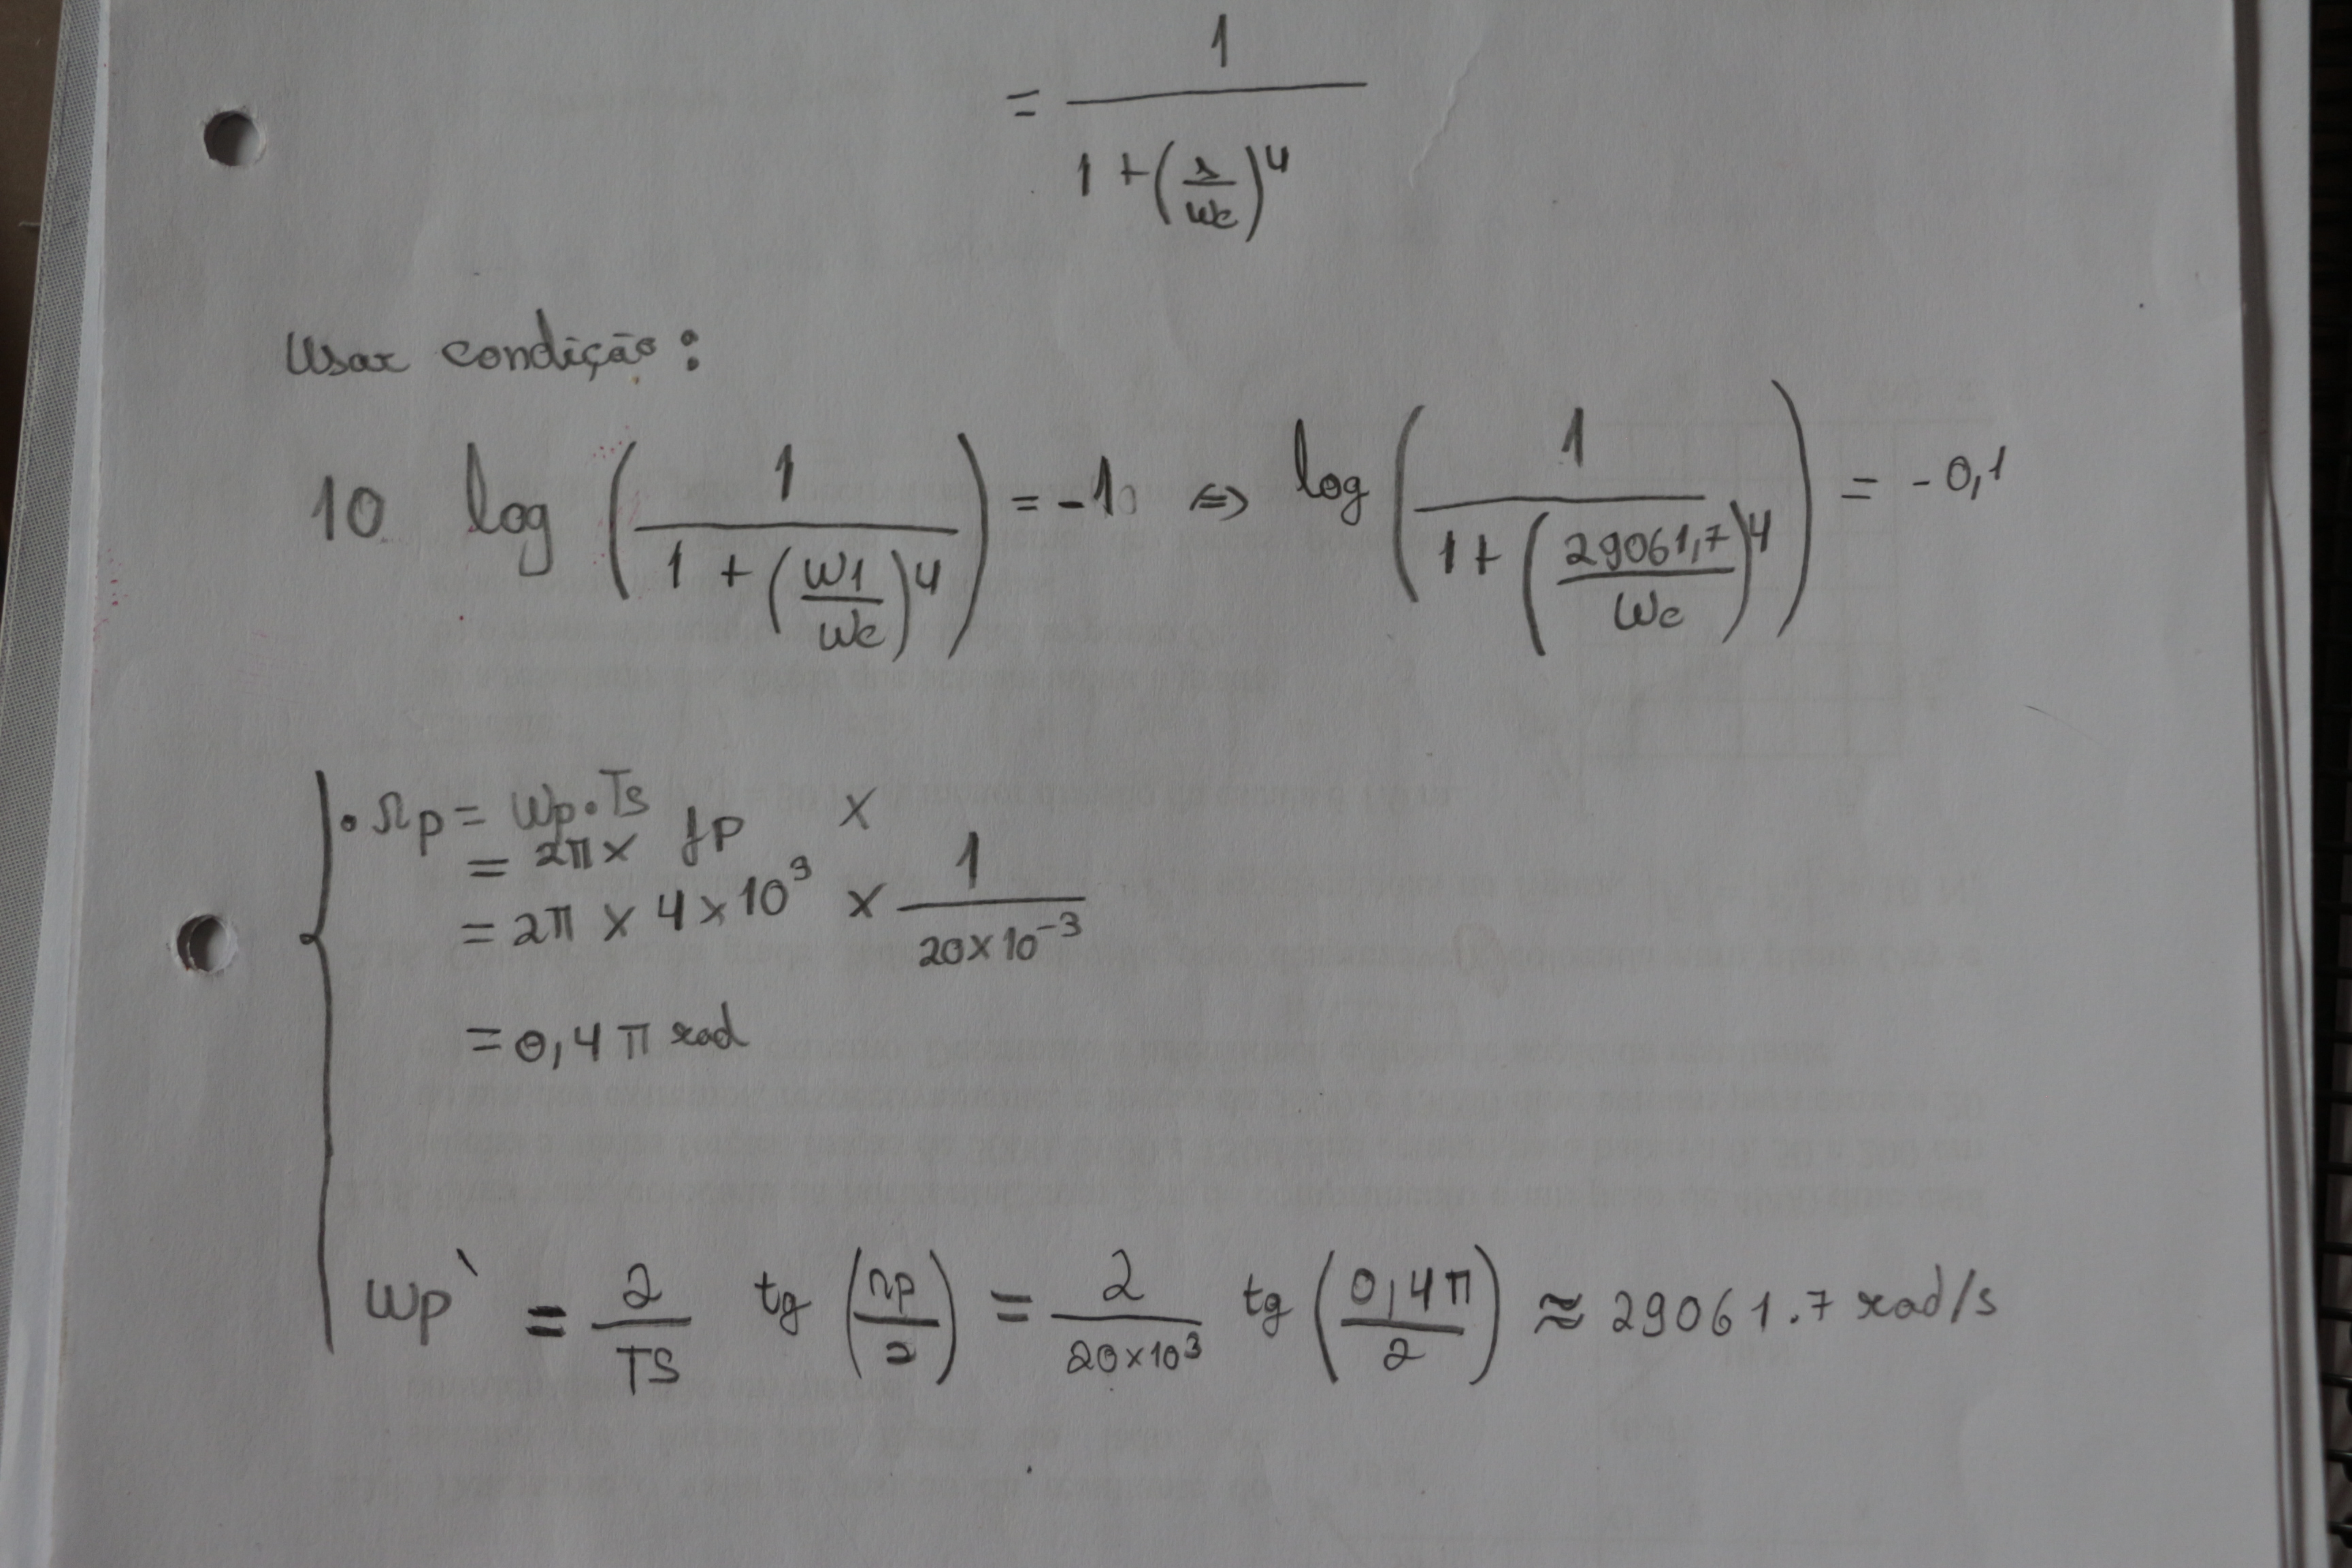 = 1 / (1 + (s/wc)^4)
Usar condição:
10 log (1 / (1 + (w1/wc)^4)) = -1 ⇔ log (1 / (1 + (29061,7/wc)^4)) = -0,1
• Ωp = wp.Ts
= 2π × fp ×
= 2π × 4×10^3 × 1/(20×10^-3)
= 0,4π rad
wp` = 2/TS tg (Ωp/2) = 2/(20×10^3) tg (0,4π/2) ≈ 29061.7 rad/s